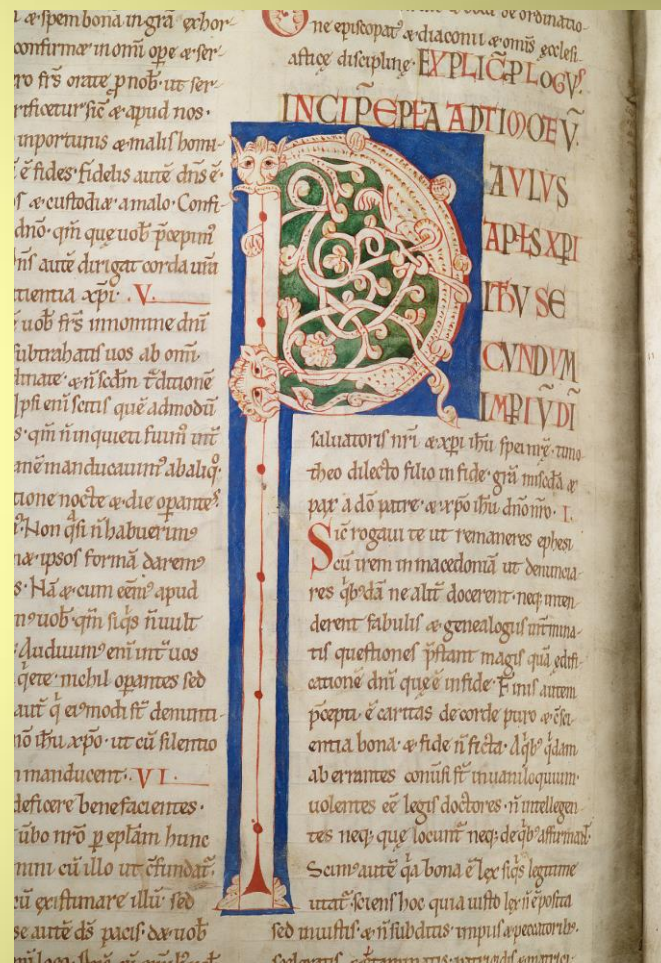 & spem bona in gra exhor
confirme in omi ope & ser
ro frs orate p nob ut ser
rificetur sic & apud nos
inportunis & malis homi
ē fides fidelis autē dns ē
& custodi& a malo Confi
dnō qm que uob pcepim
autē dirigat corda ura
tientia xpi V
uob frs in nomine dni
subtrahatis uos ab omi
dinate & n scdm tditionē
Ipsi eni scitis quē admodū
qm n inquieti fuim int
panē manducauim ab aliq
tione nocte & die operante
Non qsi n habuerim
ipsos formā darem
Nā & cum eem apud
uob qm siqs n uult
Audiuim eni int uos
qete nichil opantes sed
autē q ei modi st denunti
ihu xpo ut cū silentio
manducent VI
deficere benefacientes
ūbo nrō p eplām hunc
cū illo ut cfundat
existimare illū sed
autē ds pacis d& uob
de ordinatio
ne episcopat & diaconii & omis ecclesi
astice discipline EXPLIC PLOGVS
INCIP EPLA AD TIMOTEV
PAVLVS
APLS XPI
IHV SE
CVNDVM
IMPIV DI
saluatoris nri & xpi ihu spei nre timo
theo dilecto filio in fide grā miscdā &
pax a dō patre & xpo ihu dno nro I
Sic rogaui te ut remaneres ephesi
cū irem in macedoniā ut denuncia
res qbdā ne alit docerent neq inten
derent fabulis & genealogiis intmina
tis questiones pstant magis quā edifi
catione dni que ē in fide Finis autem
pcepti ē caritas de corde puro & csci
entia bona & fide n ficta A qb qdam
aberrantes conusi st in uaniloquium
uolentes eē legis doctores n intellegen
tes neq que locunt neq de qb affirmant
Scim autē qa bona ē lex siqs legitime
utat sciens hoc quia iusto lex n ē posita
sed iniustis & n subditis impiis & peccatorib